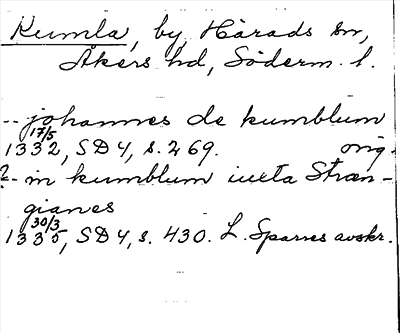 Kumla, by, Härads sn,
Åkers hd, Söderm. l.
-- johannes de kumblum
17/5
1332, SD 4, s. 269. orig.
?- in kumblum iuxta Stræn-
gianes
30/3
1335, SD 4, s. 430. L. Sparres avskr.